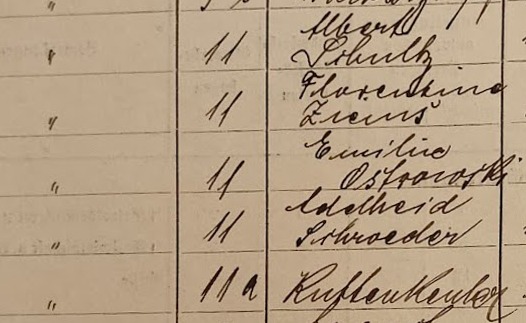 Albert
" 11 Schultz
Florentine
" 11 Ziems
Emilie
" 11 Ostrowski
Adelheid
" 11 Schroeder
" 11a